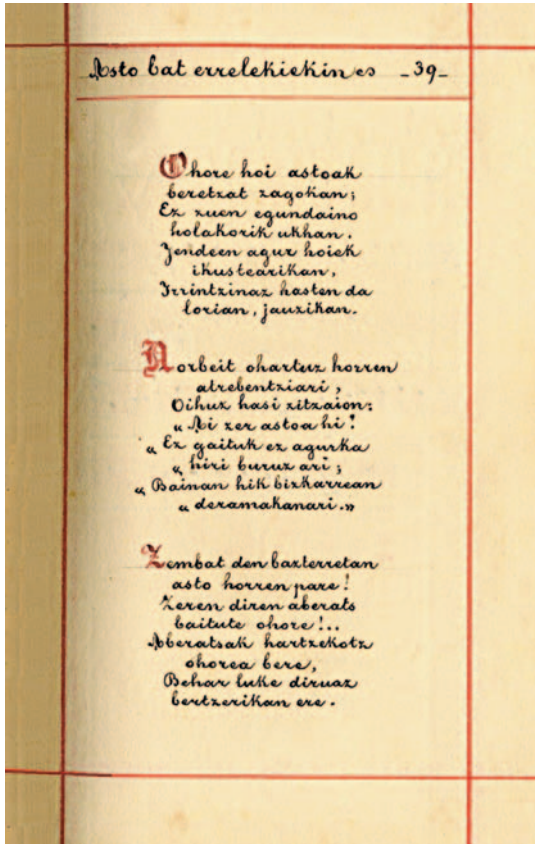 Asto bat errelekiekin es -39-
Ohore hoi astoak
beretzat zagokan;
Ez zuen egundaino
holakorik ukhan.
Jendeen agur hoiek
ikustearikan,
Irrintzinaz hasten da
lorian, jauzikan.
Norbeit ohartuz horren
atrebentziari,
Oihuz hasi zitzaion:
« Ai zer astoa hi!
« Ez gaituk ez agurka
« hiri buruz ari;
« Bainan hik bizkarrean
« deramakanari.»
Zembat den bazterretan
asto horren pare!
Zeren diren aberats
baitute ohore!..
Aberatsak hartzekotz
ohorea bere,
Behar luke diruaz
bertzerikan ere.